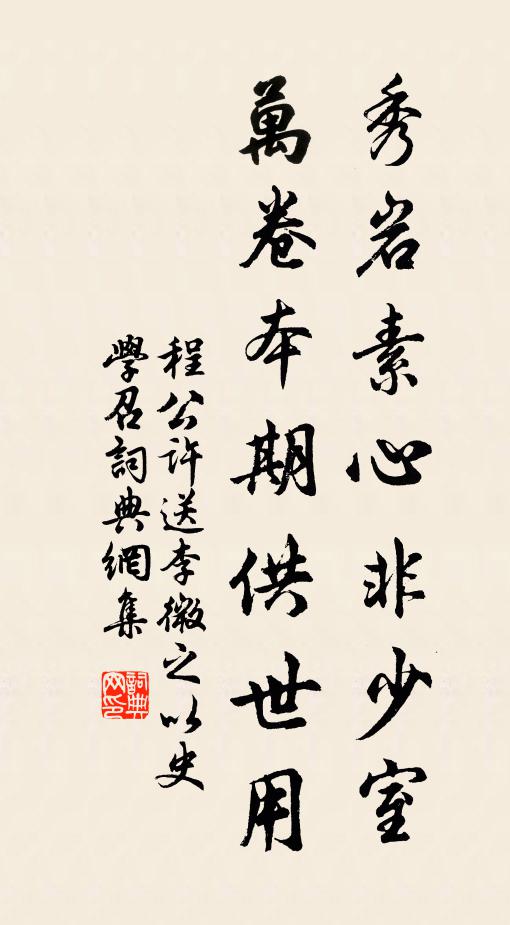 秀岩素心非少室
萬卷本期供世用
程公許送李微之以史
學召詞典網集
詞典網印